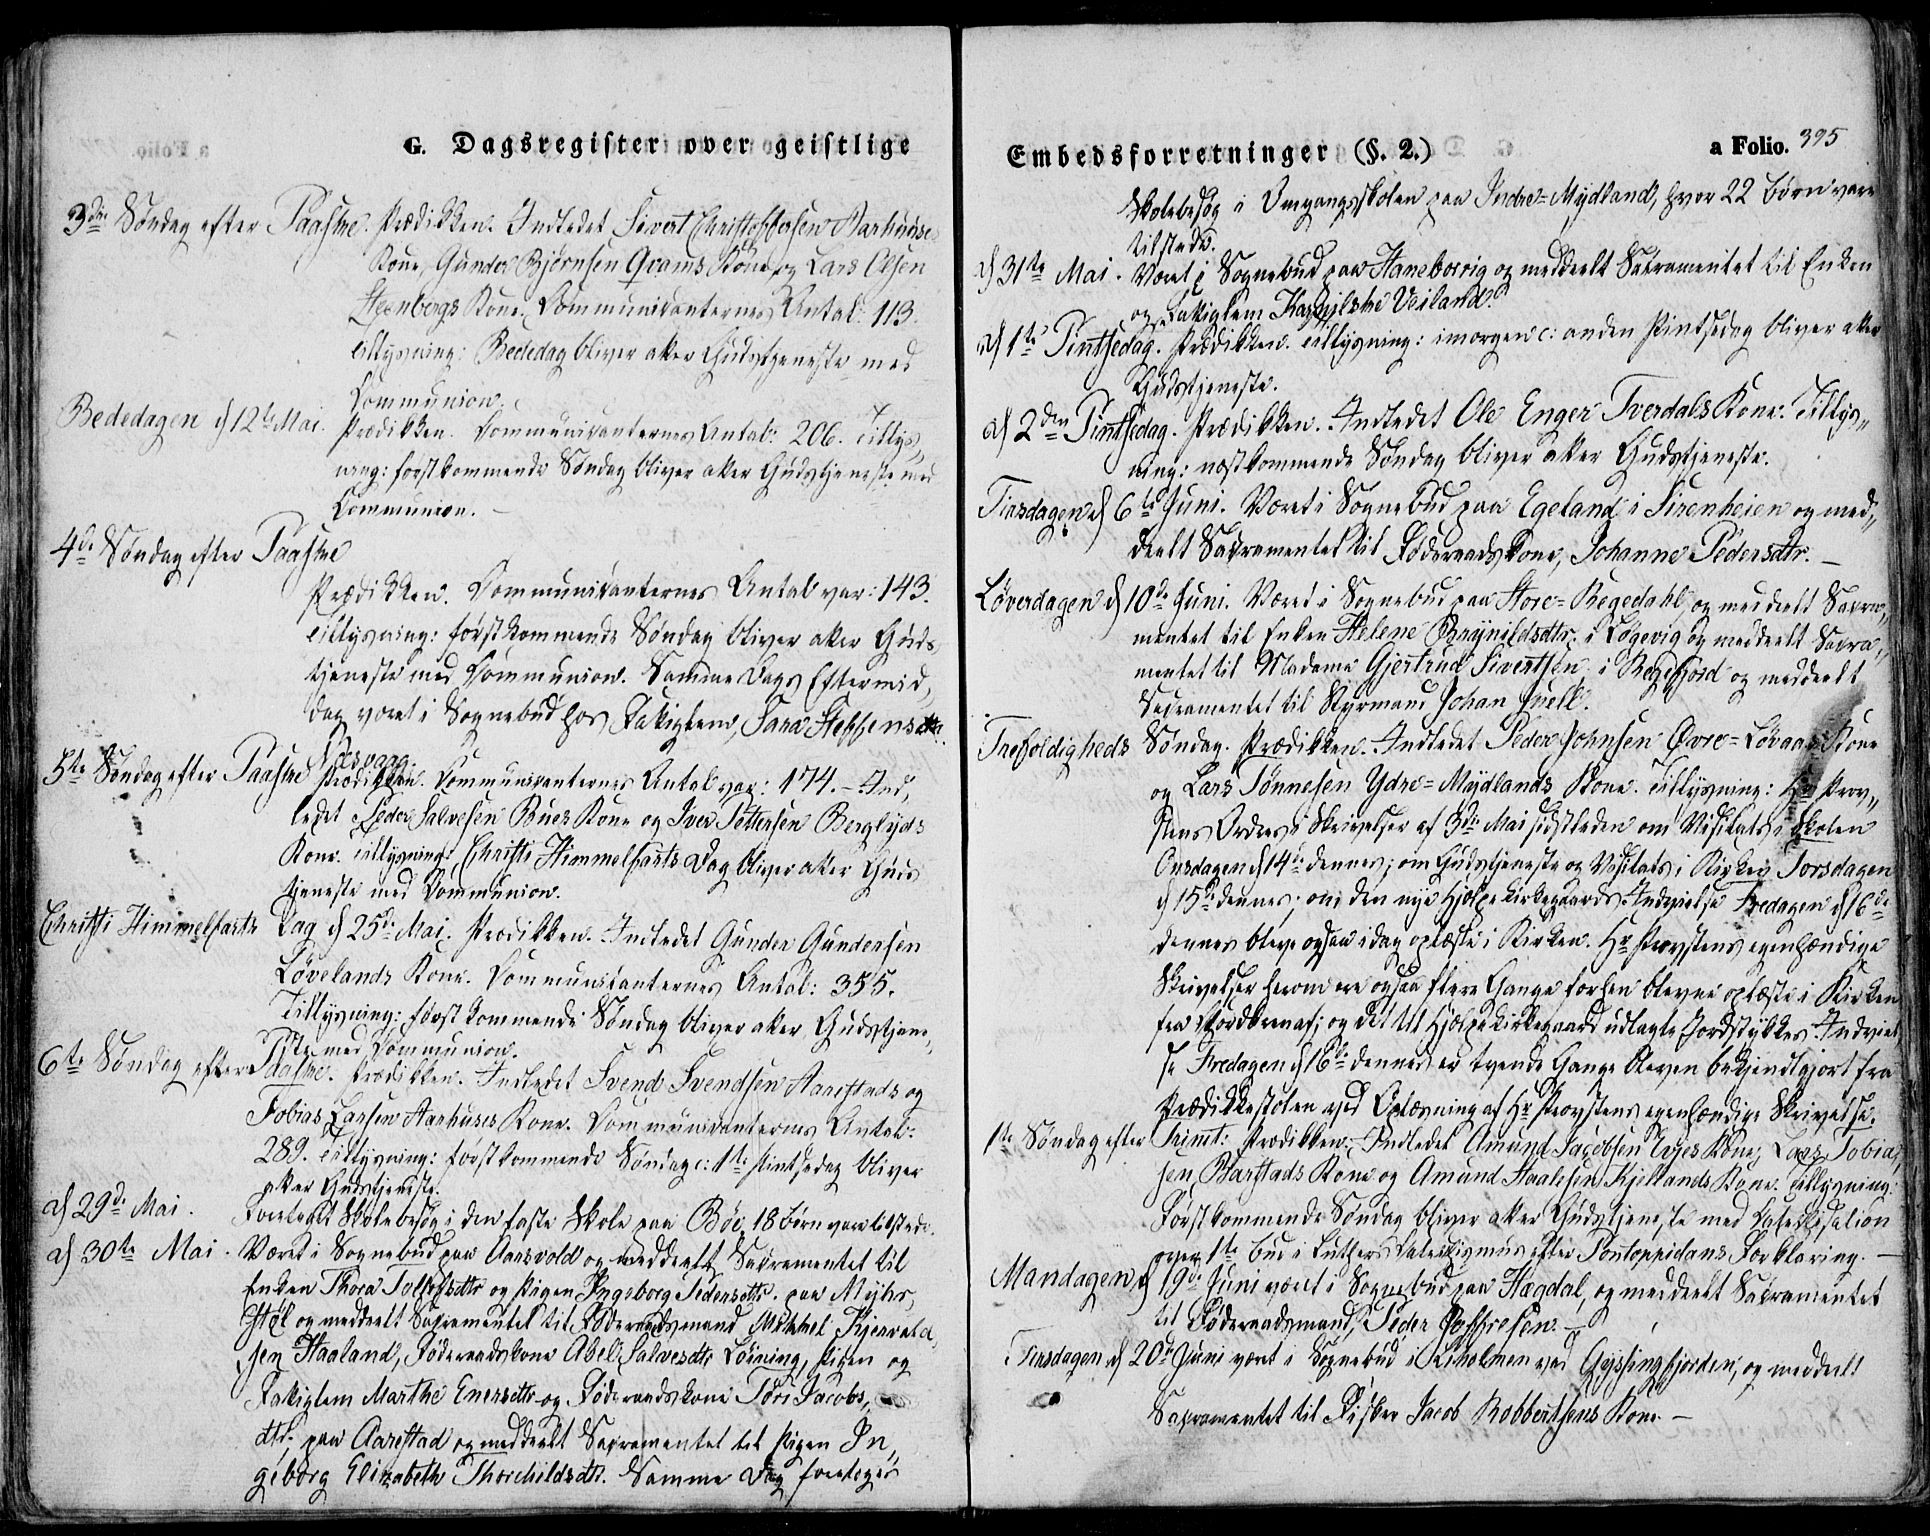 G. Dagsregister over geistlige
3die Søndag efter Paaske. Prædiken. Indledet Sivert Christophersen Aarhuuses
Kone, Gunder Bjørnsen Qvams Kone, og Lars Olsen
Kone. Communicanternes Antal: 113.
Tillysning: Bededag bliver atter Gudstjeneste med
Communion.
Bededagen d 12te Mai. Prædiken. Communicanternes Antal: 206. Tillys-
ning: førstkommende Søndag bliver atter Gudstjeneste med
Communion. –
4de Søndag efter Paaske
Prædiken. Communicanternes Antal var: 143.
Tillysning: førstkommende Søndag bliver atter Guds
tjeneste med Communion. Samme Dags Eftermid-
dag været i Sognebud hos Fattiglem, Sara Steffensdtr.
5te Søndag efter Paaske Prædiken. Communicanternes Antal var: 174. – Ind-
ledet Peder Salvesen Bues Kone og Iver Pettersen Berglyds
Kone. Tillysning: Christi Himmelfarts Dag bliver atter Guds
tjeneste med Communion.
Christi Himmelfarts Dag d 25de Mai. Prædiken. Indledet Gunder Gundersen
Løvelands Kone. Communicanternes Antal: 355.
Tillysning: førstkommende Søndag bliver atter Gudstjene-
ste med Communion.
6te Søndag efter Paaske. Prædiken. Indledet Svend Svendsen Aarestads og
Tobias Larsen Aarhuses Kone. Communicanternes Antal:
289. Tillysning: førstkommende Søndag c: 1te Pintsedag bliver
atter Gudstjeneste.
d 29de Mai. Foretaget Skolebesøg i den faste Skole paa Bøe, 18 Børn vare tilstede.
d 30te Mai. Været i Sognebud paa Aarsvold og meddeelt Sacramentet til
Enken Thora Tollefsdtr og Pigen Ingeborg Pedersdtr. paa Myhr-
støl og meddeelt Sacramentet til Føderaadsmand Mikkel Kjerrald-
sen Haaland, Føderaadskone Abel Salvesdtr Løining, Pigen og
Fattiglem Marthe Enersdtr og Føderaadskone Tori Jacobs-
dtr. paa Aarestad og meddeelt Sacramentet til Pigen In-
geborg Elizabeth Thorchildsdtr. Samme Dag foretoges
Embedsforretninger (§. 2.)
a Folio. 395
Skolebesøg i Omgangsskolen paa Indre=Mydland, hvor 22 Børn vare
tilstede.
d 31te Mai. Været i Sognebud paa Hanebervig og meddeelt Sacramentet til Enken
og Fattiglem Veiland.
d 1te Pintsedag. Prædiken. Tillysning: imorgen c: anden Pintsedag bliver atter
Gudstjeneste.
d 2den Pintsedag. Prædiken. Indledet Ole Enger Tverdals Kone. Tillys-
ning: næstkommende Søndag bliver atter Gudstjeneste.
Tirsdagen d 6te Juni. Været i Sognebud paa Egeland i Sirenheien og med-
deelt Sacramentet til Føderaadskone, Johanne Pedersdtr. –
Løverdagen d 10de Juni. Været i Sognebud paa Store=Regedahl, og meddeelt Sacra-
mentet til Enken Helene Brynildsdtr, i Løgevig og meddeelt Sacra-
mentet til Madame Gjertrud Sivertsen, i Regefjord og meddeelt
Sacramentet til Styrmand Johan Quell.
Trefoldigheds Søndag. Prædiken. Indledet Peder Johnsen Øvre=Løvaas Kone
og Lars Tønnesen Ydre=Mydlands Kone. Tillysning: Hr Prov-
stens Ordres i Skrivelser af 3die Mai sidstleden om Visitats i Skolen
Onsdagen d 14de dennes; om Gudstjeneste og Visitats i Kirken Torsdagen
d 15de dennes; om den nye Hjelpekirkegaards Indvielse Fredagen d 16de
dennes bleve ogsaa idag oplæste i Kirken. Hr Provstens egenhændige
Skrivelser herom ere ogsaa flere Gange forhen blevne oplæste i Kirken
fra og det til Hjelpekirkegaard udlagte Jordstykkes Indviel
se Fredagen d 16de dennes er tvende Gange bleven bekjendtgjort fra
Prædikestolen ved Oplæsning af Hr Provstens egenhændige Skrivelse.
1te Søndag efter Trinit: Prædiken. Indledet Amund Jacobsen Kone, Lars Tobia-
sen Barstads Kone og Amund Haalesen Kjellands Kone. Tillysning:
Førstkommende Søndag bliver atter Gudstjeneste med Catechisation
over 1te Bud i Luthers Catechismus efter Pontoppidans Forklaring. –
Mandagen d 19de Juni været i Sognebud paa Hægdal, og meddeelt Sacramentet
til Føderaadsmand, Peder Joffresen. –
Tirsdagen d 20de Juni været i Sognebud i ved Gyssingfjorden, og meddeelt
Sacramentet til Fisker Jacob Robbertsens Kone. –